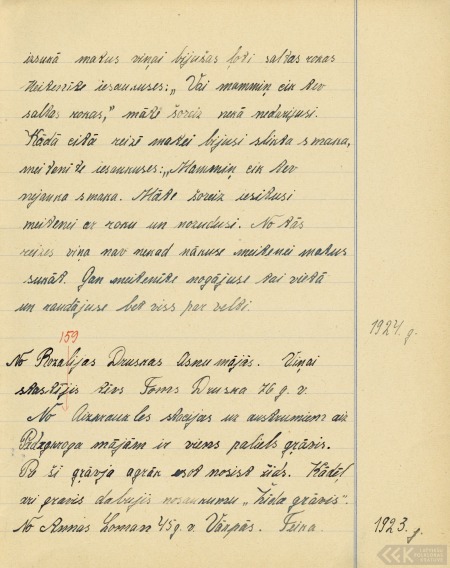 izsukā matus viņai bijušas ļoti saltas rokas
Meitenīte iesaukuses: „Vai mammiņ cik tev
saltas rokas," māte šoreiz nekā nedarijusi.
Kādā citā reizē matei bijusi slikta smaka,
meitenīte iesaukuses: „Mammiņ cik tev
nejauka smaka. Māte šoreiz iesitusi
meitenei ar roku un nozudusi. No tās
reizes viņa nav nekad nākuse meitenei matus
sukāt. Gan meitenīte nogājuse tai vietā
un raudājuse bet viss par velti.
1924. g.
159
No Rozalijas Druskas Asnu mājās. Viņai
stastījis tēvs Toms Druska 76 g. v.
No Aizkraukles stacijas uz austrumiem aiz
mājām ir viens paliels grāvis.
Pa šī grāvja agrāk esot nosists žīds. Kādēļ
arī gravis dabujis nosaukumu „Žīda grāvis".
No Annas Loman 45 g. v. Vārpās.
1923. g.